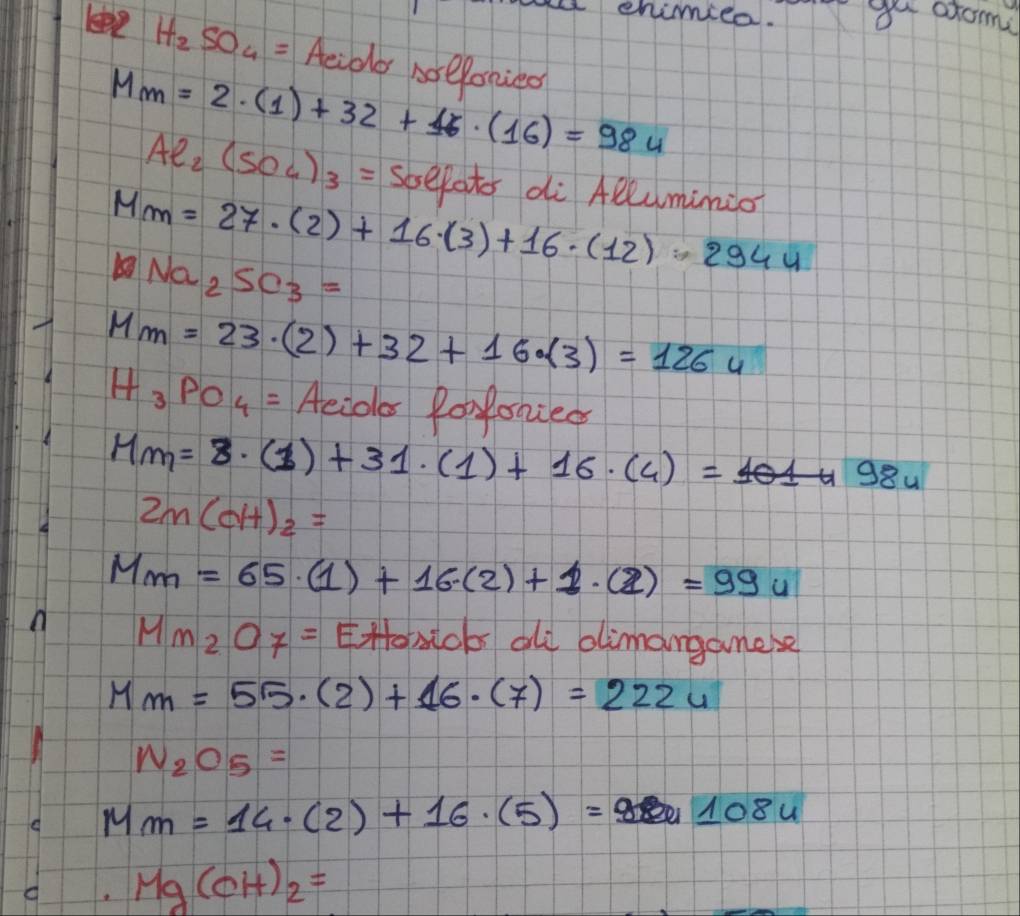 chimica. gli atomi
H₂SO₄ = Acido solforico
Mm = 2·(1) + 32 + 16·(16) = 98 u
Al₂(SO₄)₃ = Solfato di Alluminio
Mm = 27·(2) + 16·(3) + 16·(12) = 294 u
Na₂SO₃ =
Mm = 23·(2) + 32 + 16·(3) = 126 u
H₃PO₄ = Acido fosforico
Mm = 3·(1) + 31·(1) + 16·(4) = 101 u 98 u
Zn(OH)₂ =
Mm = 65·(1) + 16·(2) + 1·(2) = 99 u
Mn₂O₇ = Ettosido di dimanganese
Mm = 55·(2) + 16·(7) = 222 u
N₂O₅ =
Mm = 14·(2) + 16·(5) = 108 u
Mg(OH)₂ =